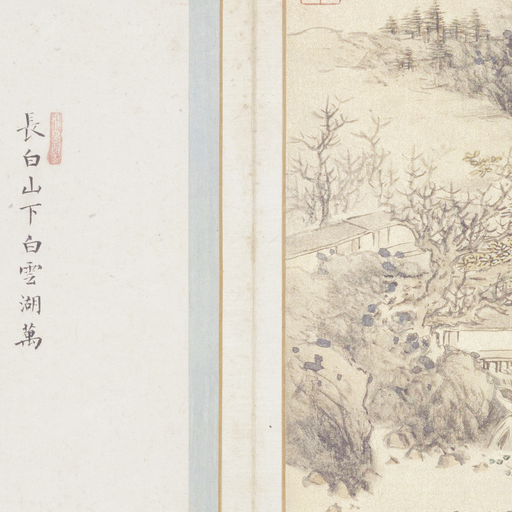 長白山下白雲湖萬